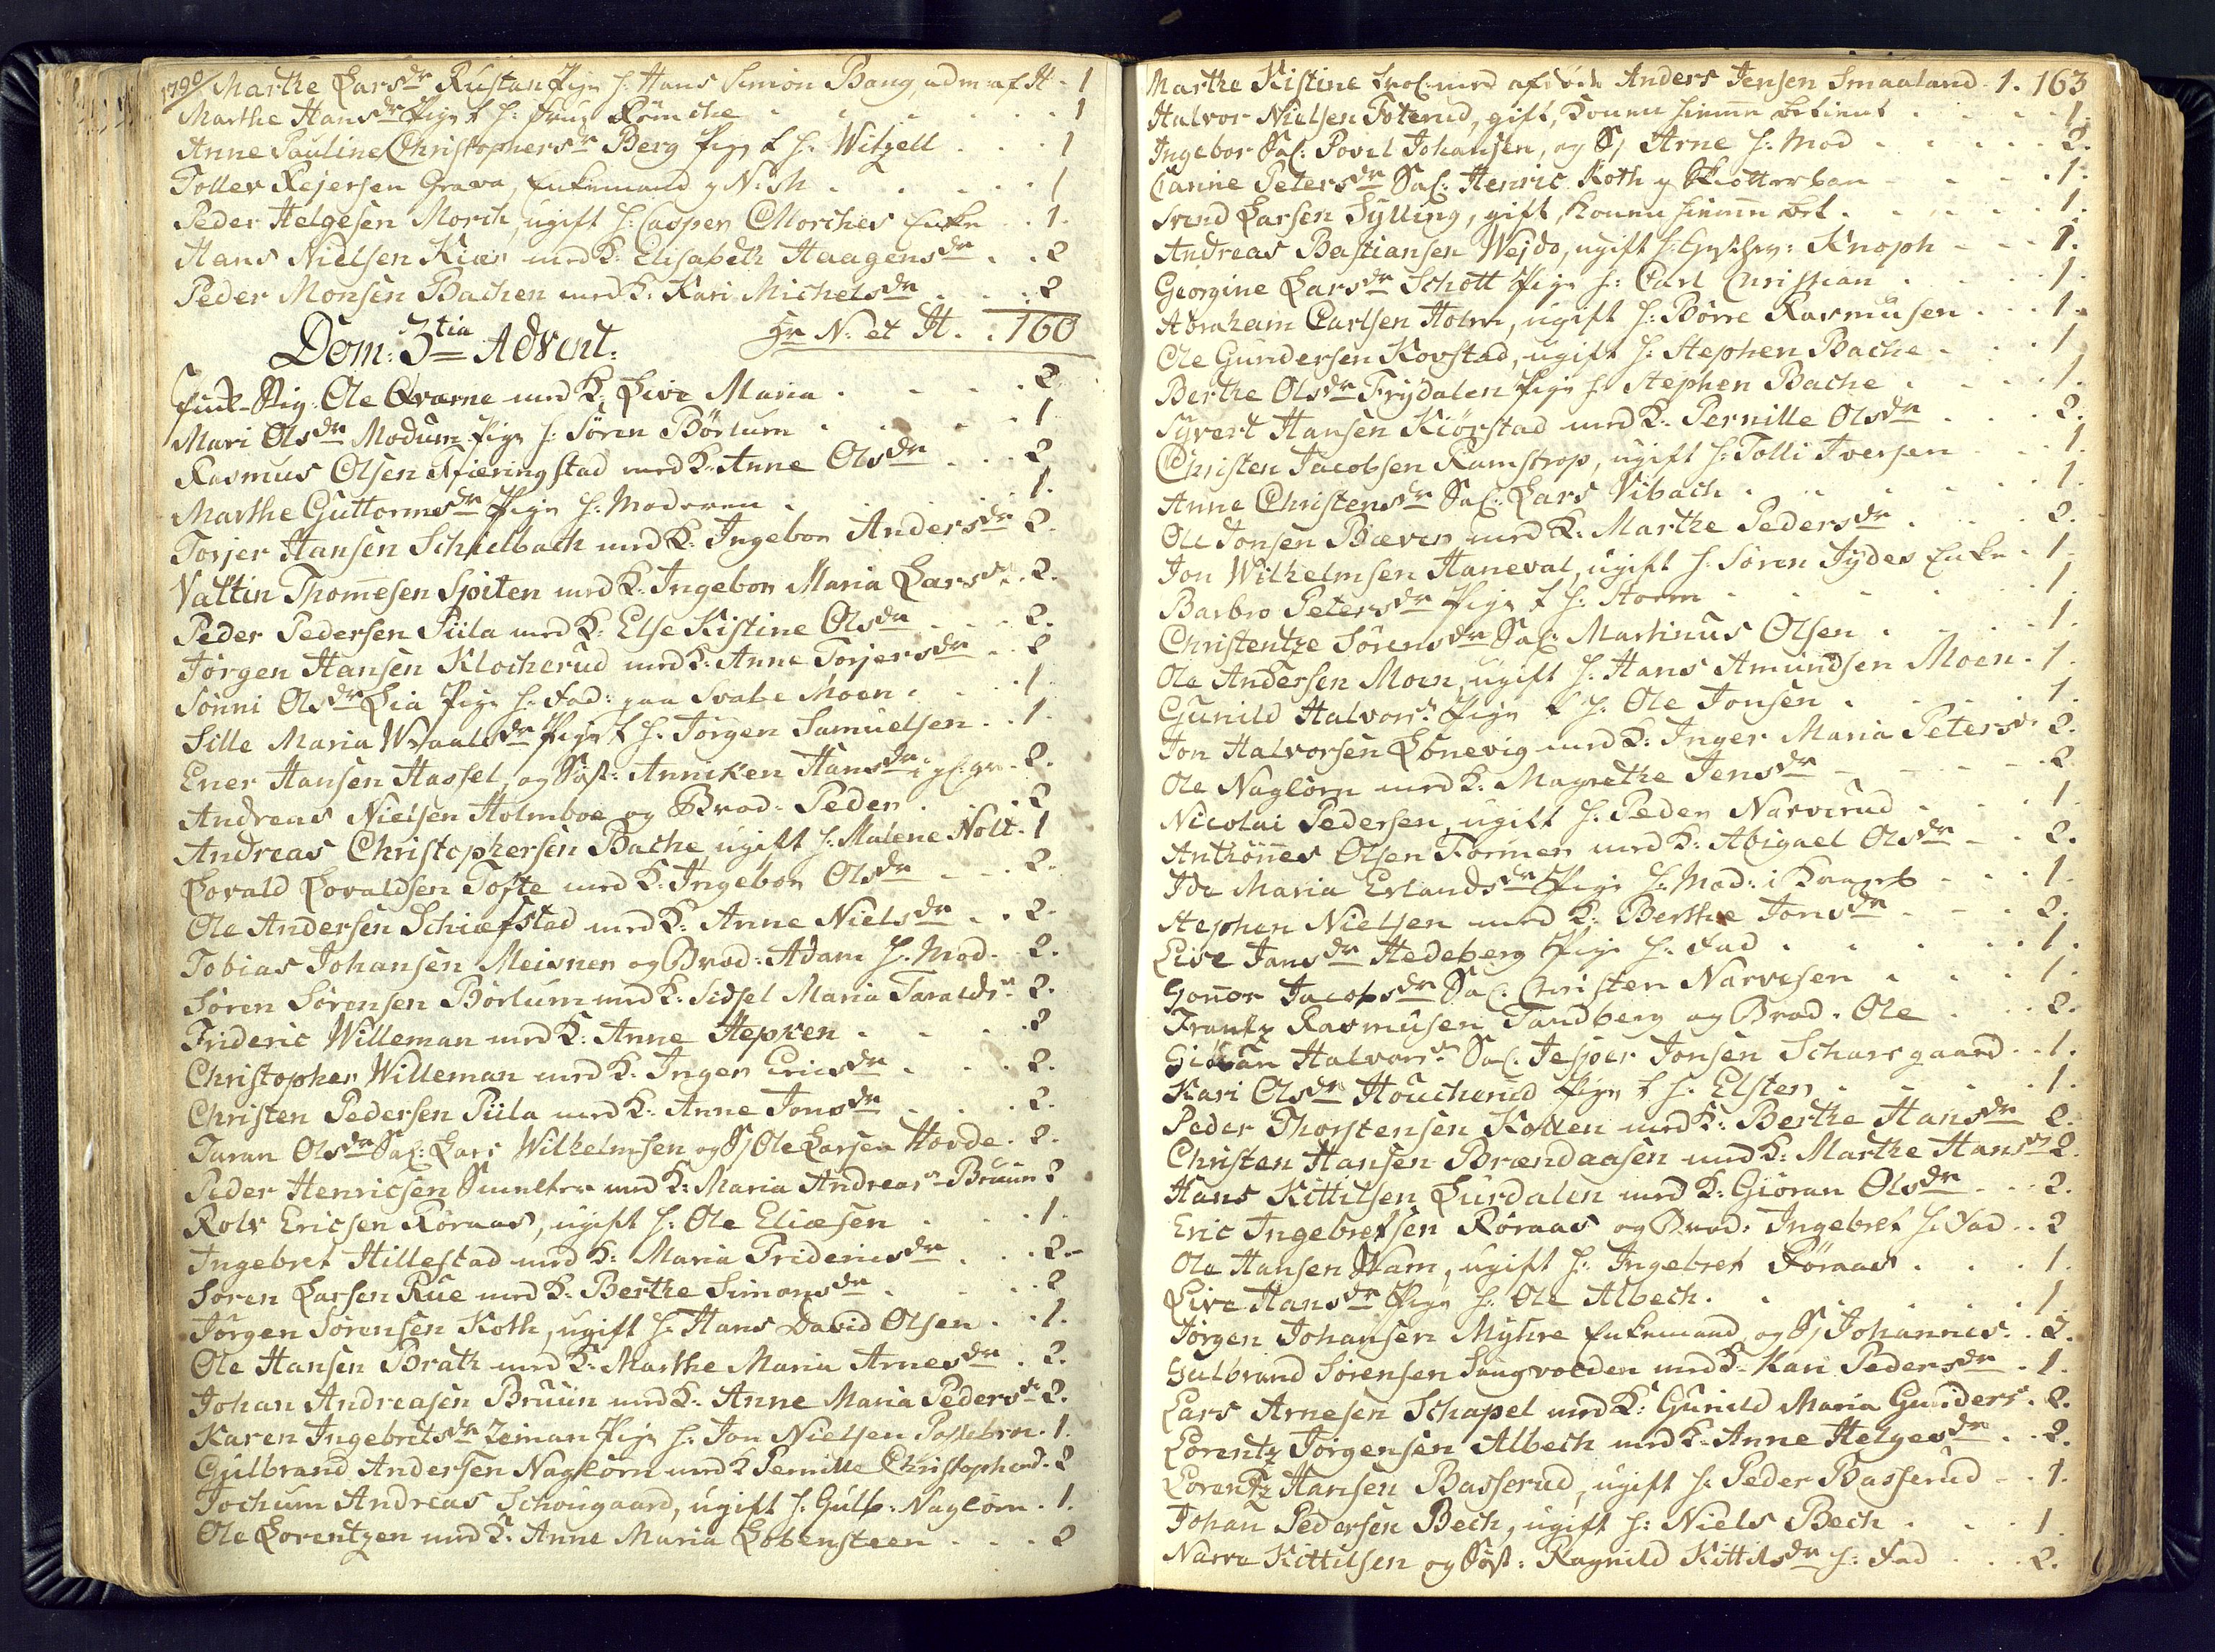 1790/ Marthe Larsdr Rustan Pige h: Hans Simon Bang, adm af H. 1
Marthe Hansdr Pige t h: frue Römche . . . 1
Anne Pauline Christophersdr Berg Pige t h: Witzell . . . 1
Tollev Rejersen Grava, Enkemand g N: M . . . 1
Peder Helgesen Morch, ugift h: Casper Morches Enke . . 1.
Hans Nielsen Kiær med K. Elisabeth Haagensdr . . 2
Peder Monsen Bachen med K. Kari Michelsdr . . . 2
Sr N. et H. . 160
Dom: 3tia Advent:
Ole Qværne med K. Live Maria . . . 2.
Mari Olsdr Modum Pige h: Sören Börlum . . . 1
Rasmus Olsen Tfieringstad med K. Anne Olsdr . . . 2
Marthe Guttormsdr Pige h: Moderen . . . 1.
Torjer Hansen Schielbach med K. Ingebor Andersdr 2.
Valtin Thomesen Spiten med K. Ingebor Maria Larsdr . 2.
Peder Pedersen Piila med K. Else Kistine Olsdr . . . 2.
Jörgen Hansen Klocherud med K. Anne Torjersdr . . 2
Sönni Olsdr Lia Pige h: Fad: paa Svabe Moen . . . 1
Sille Maria Wraalsdr Pige t h: Jörgen Samuelsen . . 1.
Ener Hansen Hassel, og Søst: Anniken Hansdr . 2.
Andreas Nielsen Holmboe og Brod: Peder . . . 2
Andreas Christophersen Bache ugift h: Malene Nolt . 1
Lovald Lovaldsen Tofte med K. Ingebor Olsdr . . . 2.
Ole Andersen Schiæfstad med K: Anne Nielsdr . . 2.
Tobias Johansen Meisner og Brod: Adam h: Mod. . 2.
Sören Sörensen Börlum med K: Sidsel Maria Taraldsdr . 2.
Frideric Willeman med K: Anne Hepken . . . 2
Christopher Willeman med K: Inger Ericsdr . . . 2.
Christen Pedersen Piila med K: Anne Jonsdr . . . 2.
Taran Olsdr Sal: Lars Wilhelmsen og S/ Ole Larsen Hovde . 2.
Peder Henricsen Smelter med K: Maria Andreasdr Bruun 2
Rolv Ericsen Röraas, ugift h: Ole Eliæsen . . . 1.
Ingebret Hillestad med K: Maria Fridericsdr . . . 2.
Sören Larsen Rue med K. Berthe Simonsdr . . . 2
Jörgen Sörensen Koth, ugift h: Hans David Olsen . . 1.
Ole Hansen Brath med K. Marthe Maria Arnesdr . 2.
Johan Andreasen Bruun med K. Anne Maria Pedersdr 2.
Karen Ingebretsdr Zeiman Pige h: Jon Nielsen Posebroe . 1.
Gulbrand Andersen Naglörn med K Pernille Christophersd . 2
Jochum Andreas Schougaard, ugift h: Gulb: Naglörn . 1.
Ole Lorentzen med K. Anne Maria Lobensteen . . . 2
Marthe Kistine Trol: med afdöde Anders Jensen Smaaland . 1. 163
Halvor Nielsen Foterud, gift, Konen hiemme betient . . . 1.
Ingebor Sal: Povel Johansen, og S/ Arne h: Mod . . . 2.
Carine Petersdr Sal: Henric Koth . . . 1.
Svend Larsen Sylling, gift, Konen hiemme bet. . . . 1.
Andreas Bastiansen Wejdo, ugift h: Knoph . . . 1.
Georgine Larsdr Schott Pige h: Carl Christian . . . 1.
Abraham Carlsen Holm, ugift h: Börre Rasmusen . . . 1.
Ole Gundersen Kovstad, ugift h: Stephen Bache . . . 1
Berthe Olsdr Frydalen Pige h: Stephen Bache . . . 1.
Syvert Hansen Kiörstad med K. Pernille Olsdr . . . 2.
Christen Jacobsen Ramstrop, ugift h: Tolli Iversen . . . 1.
Anne Christensdr Sal: Lars Vibach . . . 1.
Ole Jonsen Bæver med K: Marthe Pedersdr . . . 2.
Jon Wilhelmsen Haneval, ugift h: Sören Jydes Enke . 1.
Barbro Petersdr Pige t h: Storm . . . 1
Christentze Sörensdr Sal: Martinus Olsen . . . 1.
Ole Andersen Moen, ugift h: Hans Amundsen Moen . 1.
Gunild Halvorsdr Pige t h: Ole Jonsen . . . 1.
Jon Halvorsen Lönevig med K: Inger Maria Petersdr 2.
Ole Naglörn med K: Magrethe Jensdr . . . 2
Nicolai Pedersen, ugift h: Peder Narverud . . . 1
Anthönnes Olsen Former med K: Abigael Olsdr . . . 2.
Ide Maria Erlandsdr Pige h: Mod: i . . . 1.
Stephen Nielsen med K: Berthe Jonsdr . . . 2.
Live Jansdr Hedeberg Pige h: Fad . . . 1.
Gonor Jacobsdr Sal: Christen Narvesen . . . 1.
Frantz Rasmusen Tandberg og Brod. Ole . . . 2.
Giöran Halvorsdr Sal: Jesper Jonsen Scharsgaard . . 1.
Kari Olsdr Houcherud Pige t h: Elster . . . 1.
Peder Thorstensen Kollen med K: Berthe Hansdr 2.
Christen Hansen Brændaasen med K: Marthe Hansdr 2.
Hans Kittilsen Lurdalen med K: Giöran Olsdr . . 2.
Eric Ingebretsen Röraas og Brod: Ingebret h: Fad . . 2
Ole Hansen Ham, ugift h: Ingebret Röraas . . . 1.
Live Hansdr Pige h: Ole Albech . . . 1.
Jörgen Johansen Myhre Enkemand og S/ Johannes . . 2.
Gulbrand Sörensen Saugvolden med K. Kari Pedersdr . 1.
Lars Arnesen Schapel med K: Gunild Maria Gunders . 2.
Lorentz Jörgensen Albech med K. Anne Helgesdr . . 2.
Lorentz Hansen Basserud, ugift h: Peder Basserud . . 1.
Johan Pedersen Bech, ugift h: Niels Bech . . . 1.
Narve Kittilsen og Søst: Ragnild Kittilsdr h: Fad . . . 2.